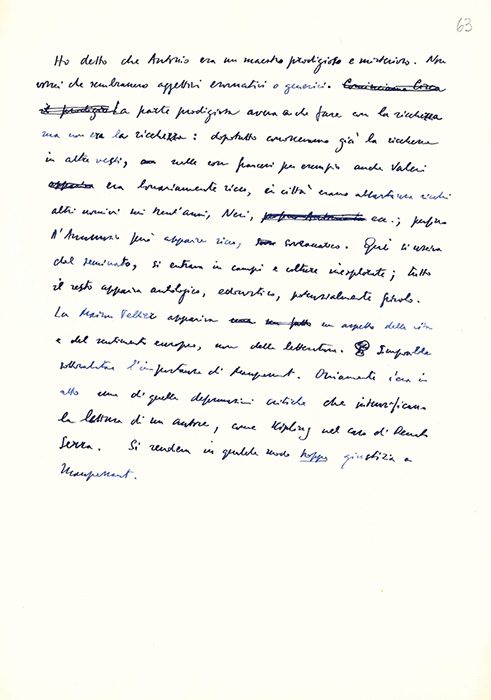 63
Ho detto che Antonio era un maestro prodigioso e misterioso. Non
vorrei che sembrassero aggettivi esornativi o generici. Cominciamo
il prodigio La parte prodigiosa aveva a che fare con la ricchezza
ma non era la ricchezza: dopotutto conoscevamo già la ricchezza
in altre vesti, nelle cose francesi per esempio anche Valéri
era bonariamente ricco, in città erano abbastanza ricchi
altri uomini sui trent'anni, Neri, ecc.; perfino
D'Annunzio però appariva ricco, Qui si usciva
dal seminato, si entrava in campi e colture inesplorate; tutto
il resto appariva antologico, edonistico, potenzialmente frivolo.
La Maison Tellier appariva un aspetto della vita
e del sentimento europeo, non della letteratura. Impossibile
sottovalutare l'importanza di Maupassant. Ovviamente c'era in
atto una di quelle deformazioni critiche che intensificano
la lettura di un autore, come Kipling nel caso di Renato
Serra. Si rendeva in qualche modo troppa giustizia a
Maupassant.